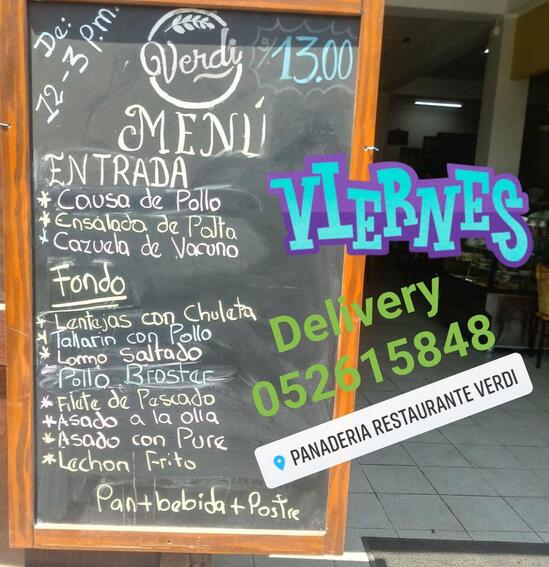 De:
12-3 p.m.
Verdi
S/13.00
MENÚ
ENTRADA
* Causa de Pollo
* Ensalada de Palta
* Cazuela de Vacuno
Fondo
* Lentejas con Chuleta
* Tallarin con Pollo
* Lomo Saltado
Pollo Broster
* Filete de Pescado
* Asado a la olla
* Asado con Pure
* Lechon Frito
Pan+bebida+Postre
VIERNES
Delivery
052615848
PANADERIA RESTAURANTE VERDI